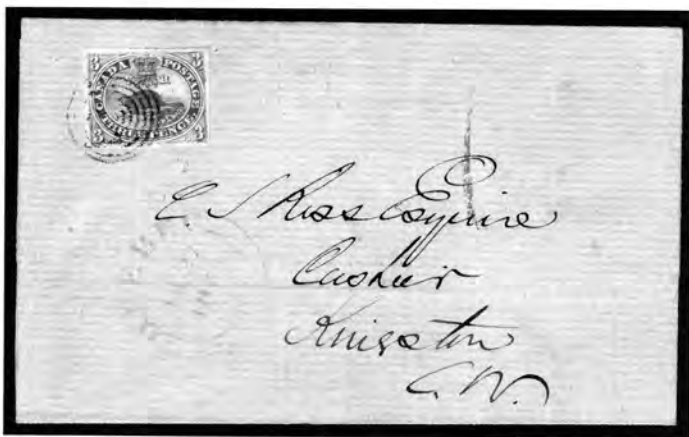 3 3
CANADA POSTAGE
THREE PENCE
3 3
C. S Ross Esquire
Cashier
Kingston
C. W.